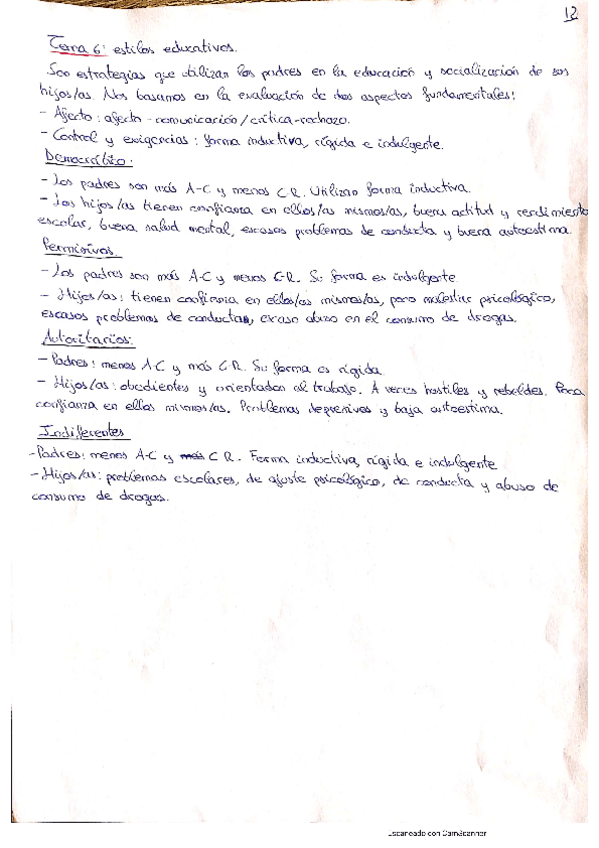 12
Tema 6: estilos educativos.
Son estrategias que utilizan los padres en la educación y socialización de sus
hijos/as. Nos basamos en la evaluación de dos aspectos fundamentales:
- Afecto: afecto-comunicación/crítica-rechazo.
- Control y exigencias: forma inductiva, rígida e indulgente.
Democrático.
- Los padres son más A-C y menos C-R. Utilizan forma inductiva.
- Los hijos/as tienen confianza en ellos/as mismos/as, buena actitud y rendimiento
escolar, buena salud mental, escasos problemas de conducta y buena autoestima.
Permisivos.
- Los padres son más A-C y menos C-R. Su forma es indulgente.
- Hijos/as: tienen confianza en ellos/as mismos/as, pero malestar psicológico,
escasos problemas de conductas, escaso abuso en el consumo de drogas.
Autoritarios:
- Padres: menos A-C y más C-R. Su forma es rígida.
- Hijos/as: obedientes y orientados al trabajo. A veces hostiles y rebeldes. Poca
confianza en ellos mismos/as. Problemas depresivos y baja autoestima.
Indiferentes
- Padres: menos A-C y más C R. Forma inductiva, rígida e indulgente
- Hijos/as: problemas escolares, de ajuste psicológico, de conducta y abuso de
consumo de drogas.
Escaneado con CamScanner